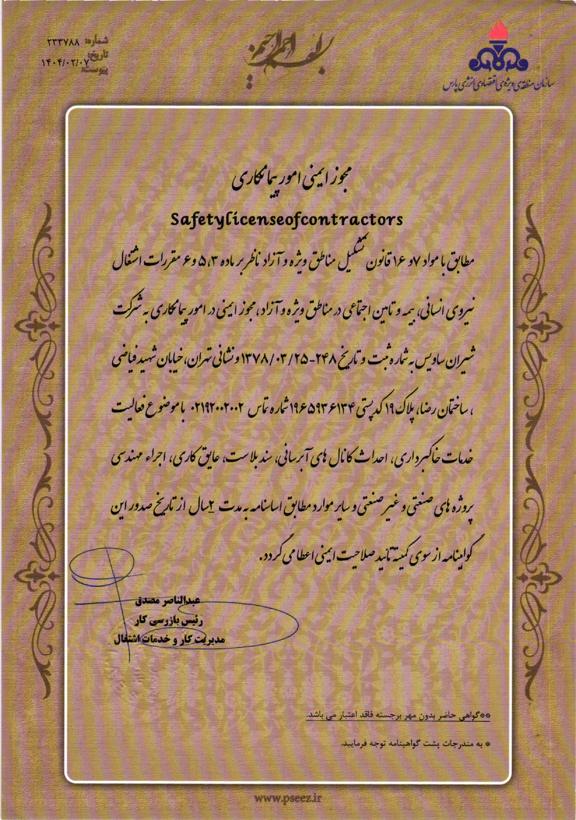 شماره: ۲۳۳۷۸۸
تاریخ: ۱۴۰۴/۰۲/۰۷
پیوست:
سازمان منطقه‌ی ویژه‌ی اقتصادی انرژی پارس
مجوز ایمنی امور پیمانکاری
Safetylicenseofcontractors
مطابق با مواد ۷ و ۱۶ قانون تشکیل مناطق ویژه و آزاد ناظر بر ماده ۵،۳ و ۶ مقررات اشتغال
نیروی انسانی، بیمه و تامین اجتماعی در مناطق ویژه و آزاد، مجوز ایمنی در امور پیمانکاری به شرکت
شیران ساویس به شماره ثبت و تاریخ ۲۴۸-۱۳۷۸/۰۳/۲۵ و نشانی تهران، خیابان شهید فیاضی
، ساختمان رضا، پلاک ۱۹ کد پستی ۱۹۶۵۹۳۶۱۳۴ شماره تماس ۰۲۱۹۲۰۰۲۰۰۲ با موضوع فعالیت
خدمات خاکبرداری، احداث کانال های آبرسانی، سندبلاست، عایق کاری، اجراء مهندسی
پروژه های صنعتی و غیر صنعتی و سایر موارد مطابق اساسنامه به مدت ۲ سال از تاریخ صدور این
گواهینامه از سوی کمیته تائید صلاحیت ایمنی اعطا می گردد.
عبدالناصر مصدق
رئیس بازرسی کار
مدیریت کار و خدمات اشتغال
**گواهی حاضر بدون مهر برجسته فاقد اعتبار می باشد.
* به مندرجات پشت گواهینامه توجه فرمایید.
www.pseez.ir